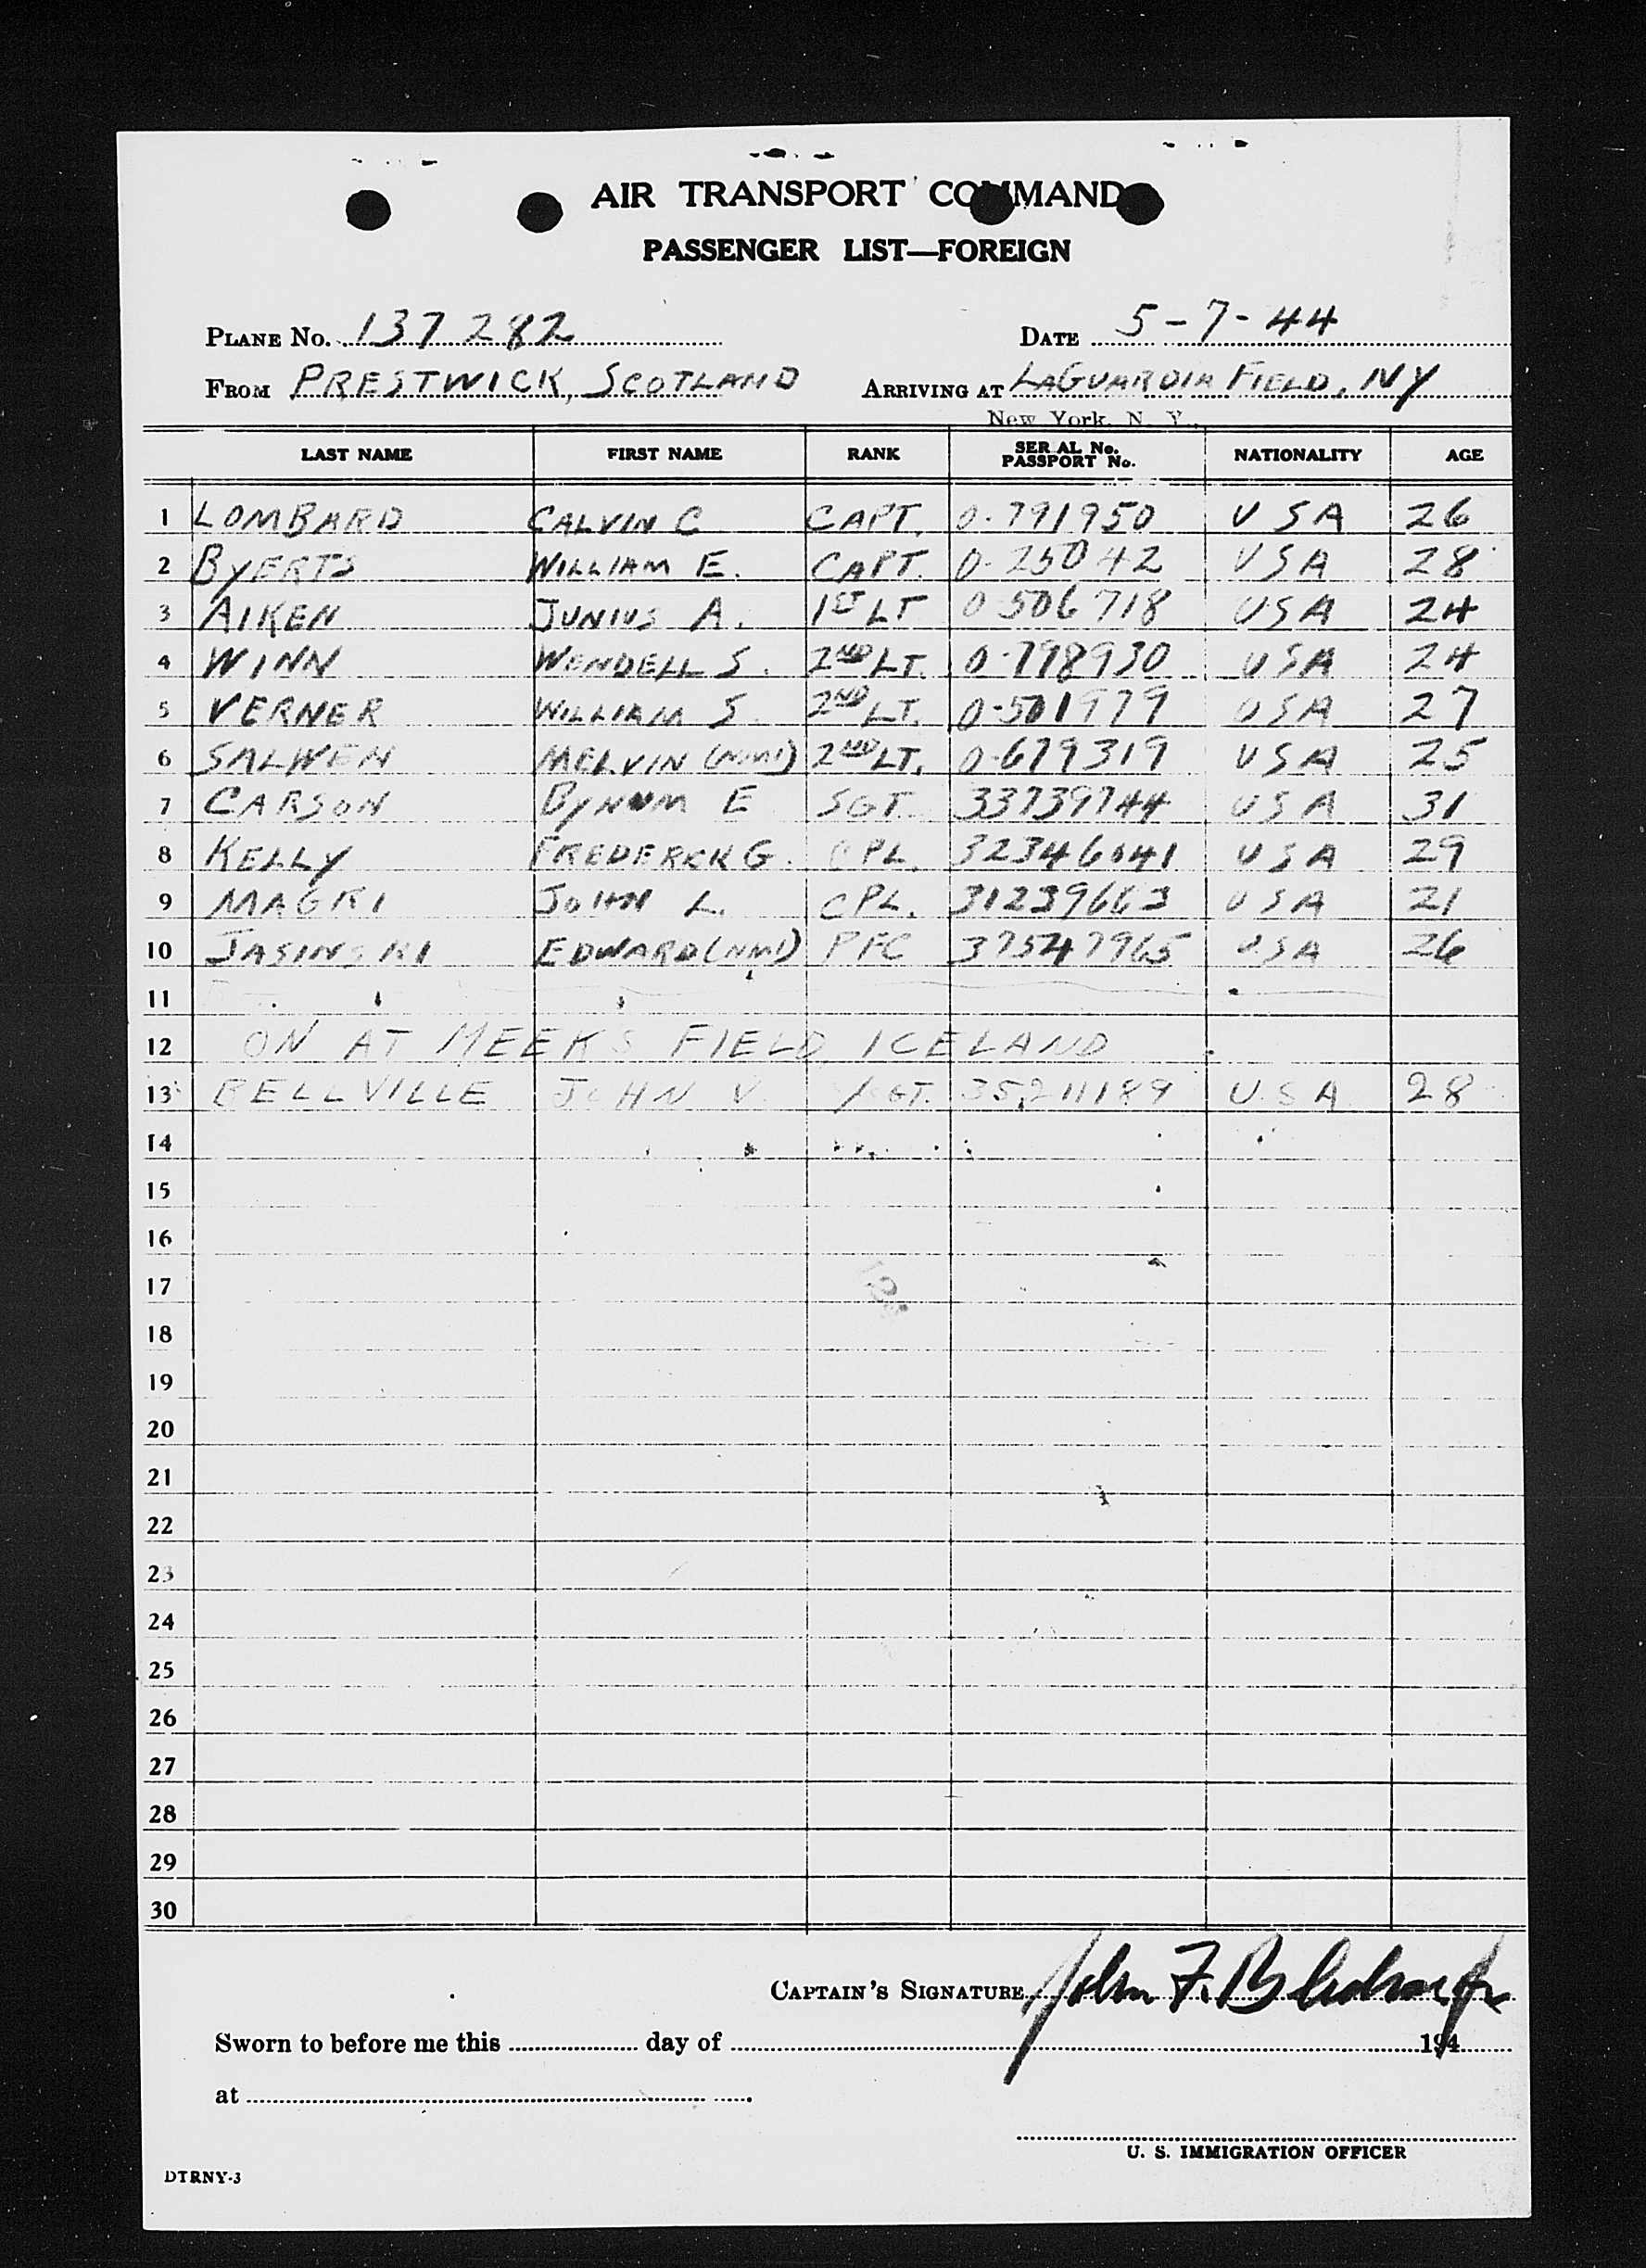 AIR TRANSPORT COMMAND
PASSENGER LIST—FOREIGN
PLANE No. 137282 DATE 5-7-44
FROM PRESTWICK, SCOTLAND ARRIVING AT LAGUARDIA FIELD, NY
New York, N. Y.,
LAST NAME FIRST NAME RANK SERIAL No. PASSPORT No. NATIONALITY AGE
1 LOMBARD CALVIN C CAPT. 0-791950 USA 26
2 BYERTS WILLIAM E. CAPT. 0-25042 USA 28
3 AIKEN JUNIUS A. 1ST LT 0-506718 USA 24
4 WINN WENDELL S. 2ND LT. 0-798930 USA 24
5 VERNER WILLIAM S. 2ND LT. 0-501979 USA 27
6 SALWEN MELVIN (NMI) 2ND LT. 0-679319 USA 25
7 CARSON BYNUM E SGT. 33739744 USA 31
8 KELLY FREDERICK G. CPL. 32346041 USA 29
9 MAGRI JOHN L. CPL. 31239663 USA 21
10 JASINSKI EDWARD (NMI) PFC 37547965 USA 26
11
12 ON AT MEEKS FIELD ICELAND
13 BELLVILLE JOHN V 35211189 U.S.A 28
14
15
16
17
18
19
20
21
22
23
24
25
26
27
28
29
30
CAPTAIN'S SIGNATURE John F. B
Sworn to before me this day of 194
at
U. S. IMMIGRATION OFFICER
DTRNY-3